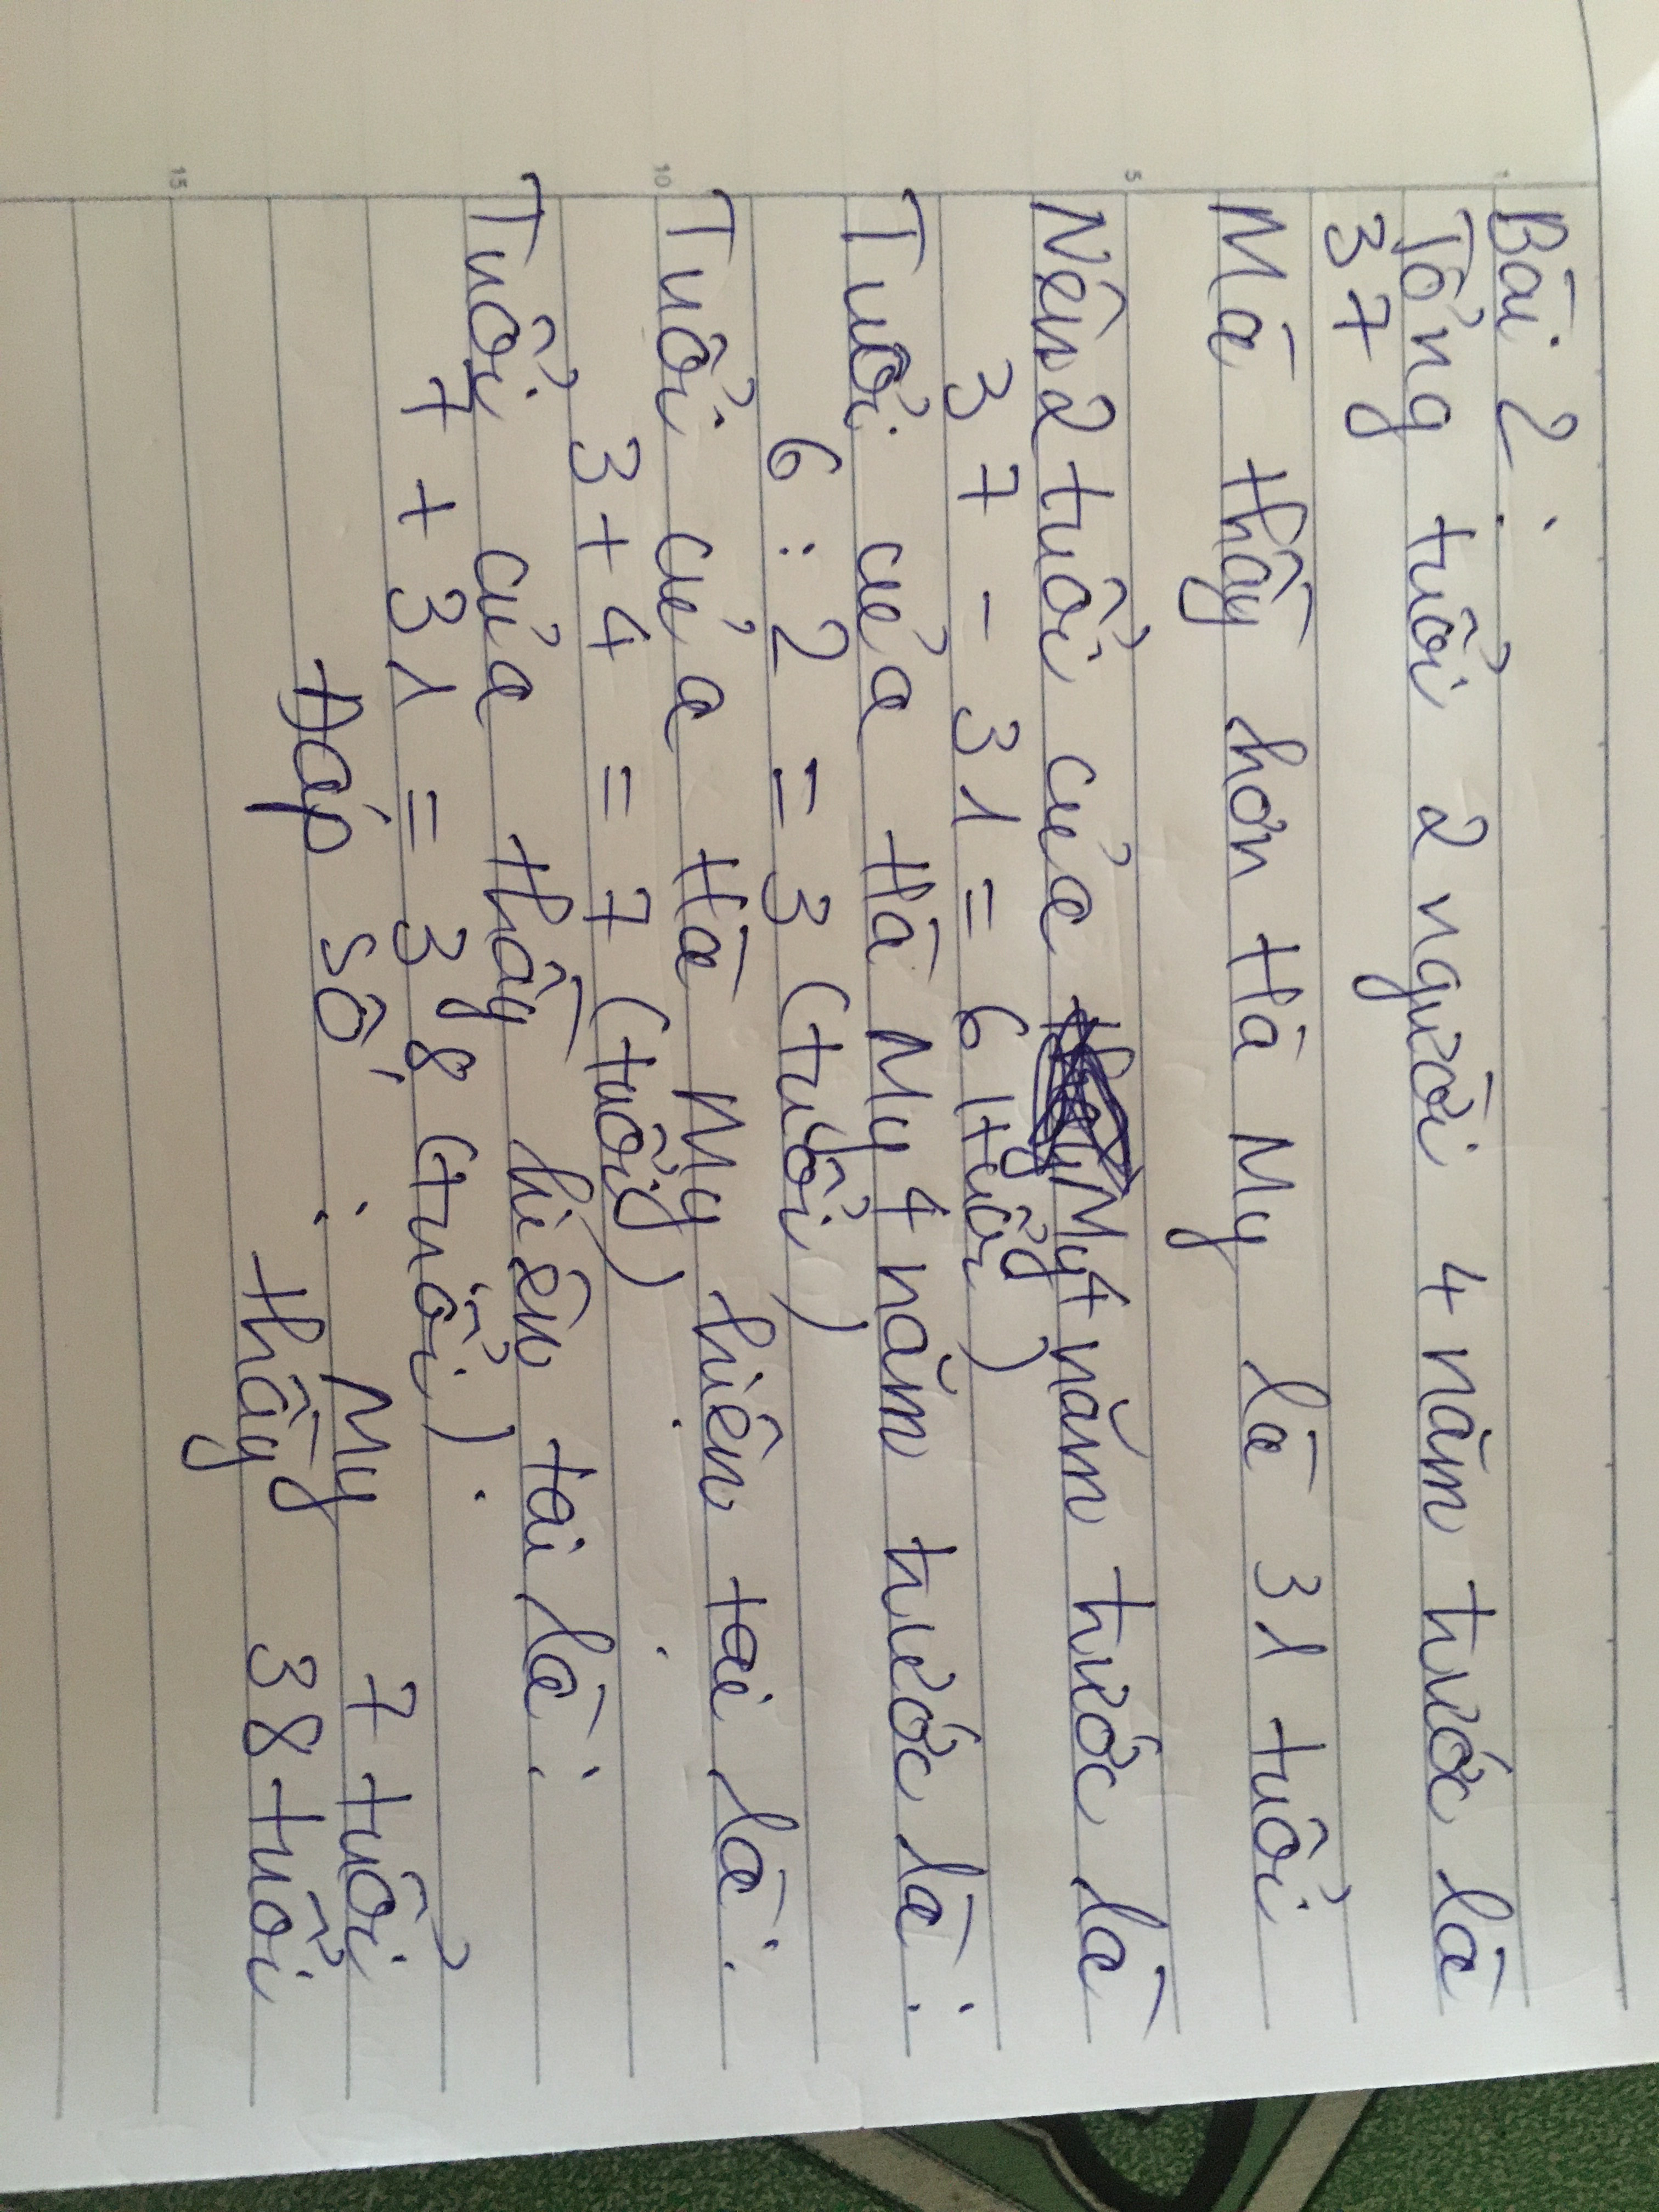 Bài 2:
Tổng tuổi 2 người 4 năm trước là
37
Mà thầy hơn Hà My là 31 tuổi
Nên 2 tuổi của My 4 năm trước là
37 - 31 = 6 (tuổi)
Tuổi của Hà My 4 năm trước là:
6 : 2 = 3 (tuổi)
Tuổi của Hà My hiện tại là:
3 + 4 = 7 (tuổi)
Tuổi của thầy hiện tại là:
7 + 31 = 38 (tuổi).
Đáp số : My 7 tuổi
Thầy 38 tuổi
1
5
10
15